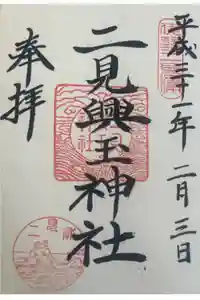 平成三十一年二月三日
二見興玉神社
奉拝